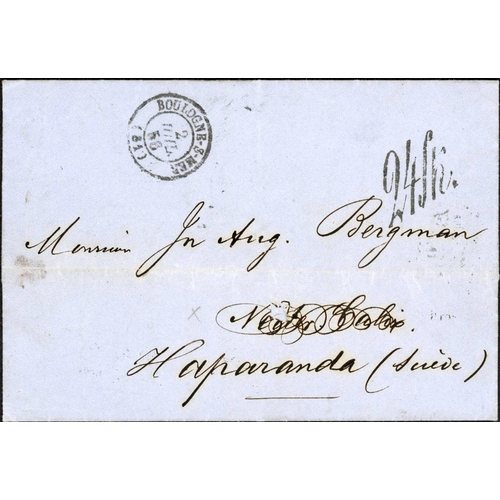 BOULOGNE-S-MER
2
JUIL.
56
(61)
24 Sk.
Monsieur Jn Aug. Bergman
Neder Calix.
Haparanda (Suède)